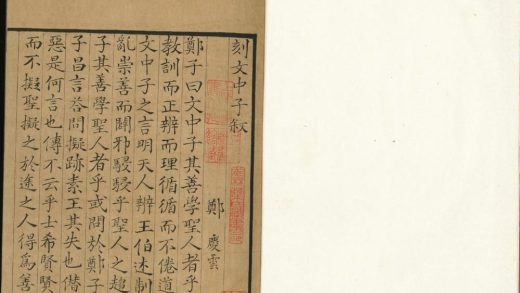 刻文中子敘
鄭慶雲
鄭子曰文中子其善學聖人者乎
教訓而正辨而理循循而不倦道
文中子之言明天人辨王伯述制
亂崇善而闢邪駸駸乎聖人之趨
子其善學聖人者乎或問於鄭子
子昌言荅問擬跡素王其失也僭
惡是何言也傳不云乎士希賢賢
而不擬聖擬之於途之人得爲善